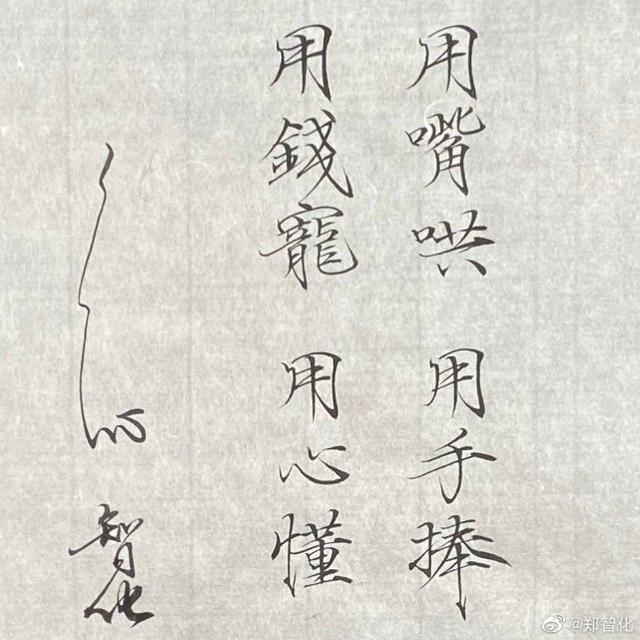 用嘴哄 用手捧
用錢寵 用心懂
智化
@郑智化